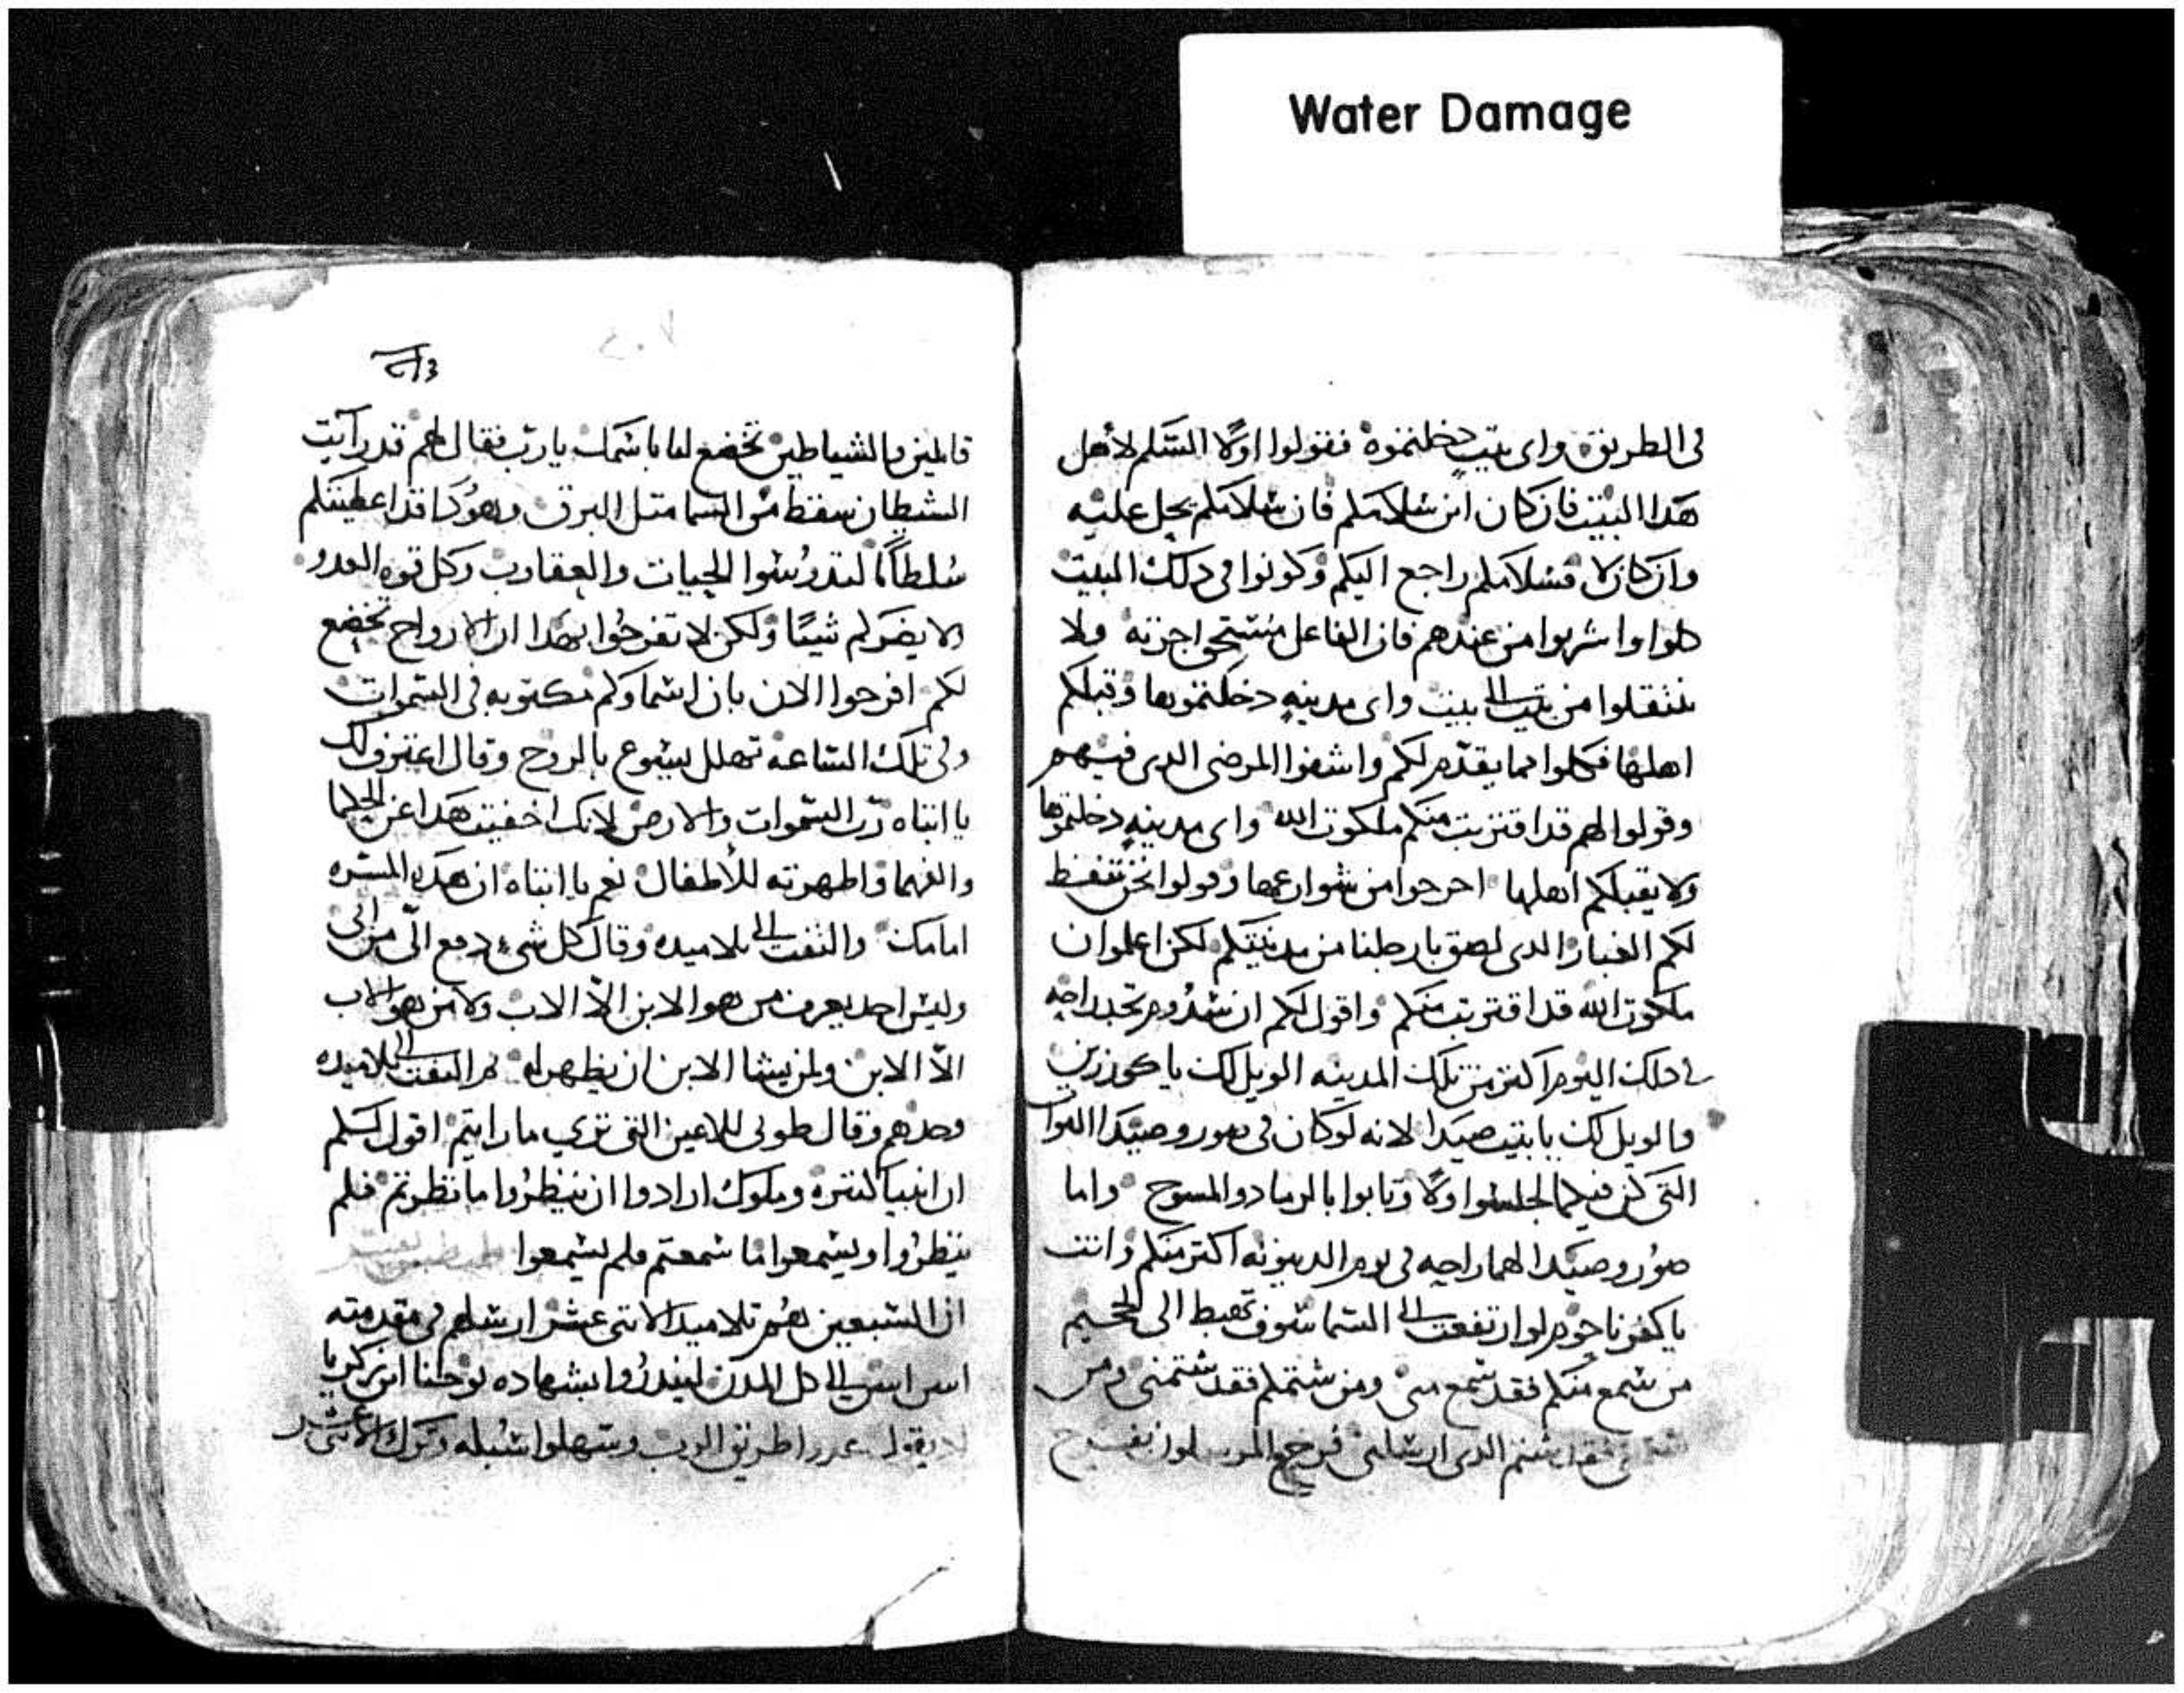 Water Damage
فى الطريق واى بيت دخلتموه فقولوا اولا السلم لاهل
هدا البيت فان كان ابن سلامكم فان سلامكم يحل عليه
وان كان لا فسلامكم راجع اليكم وكونوا فى دلك البيت
كلوا واشربوا من عندهم فان الفاعل مستحق اجرته ولا
تنتقلوا من بيت الى بيت واى مدينه دخلتموها وقبلكم
اهلها فكلوا مما يقدم لكم واشفوا المرضى الدى فيهم
وقولوا لهم قد اقتربت منكم ملكوت الله واى مدينه دخلتموها
ولا يقبلكم اهلها اخرجوا من شوارعها وقولوا نحن ننفط
لكم الغبار الدى لصق بارجلنا من مدينتكم لكن اعلموا ان
ملكوت الله قد اقتربت منكم واقول لكم ان سدوم تجد راحه
فى دلك اليوم اكتر من تلك المدينه الويل لك يا كورزين
والويل لك يا بيت صيدا لانه لو كان فى صور وصيدا القوات
التى كن فيكما لجلسوا اولا وتابوا بالرماد والمسوح واما
صور وصيدا لهما راحه فى يوم الدينونه اكتر منكم وانت
يا كفرناحوم لو ارتفعت الى السما سوف تهبط الى الجحيم
من سمع منكم فقد سمع منى ومن شتمكم فقد شتمنى ومن
شتمنى فقد شتم الدى ارسلنى فرجع المرسلون بفرح
قايلين والشياطين تخضع لنا باسمك يارب فقال لهم قد رايت
الشطان سقط من السما متل البرق وهودا قد اعطيتكم
سلطانا لتدوسوا الحيات والعقارب وكل قوه العدو
ولا يضركم شيا ولكن لا تفرحوا بهدا ان الارواح تخضع
لكم افرحوا الان بان اسماوكم مكتوبه فى السموات
وفى تلك الساعه تهلل يسوع بالروح وقال اعترف لك
يا ابتاه رب السموات والارض لانك اخفيت هدا عن الحكما
والفهما واظهرته للاطفال نعم يا ابتاه ان هده المسره
امامك والتفت الى تلاميده وقال كل شى دفع الى من ابى
وليس احد يعرف من هو الابن الا الاب ولا من هو الاب
الا الابن ولمن يشا الابن ان يظهر له تم التفت الى تلاميده
وحدهم وقال طوبى للاعين التى ترى ما رايتم اقول لكم
ان انبيا كتيره وملوك ارادوا ان ينظروا ما نظرتم فلم
ينظروا ويسمعوا ما سمعتم فلم يسمعوا
ان السبعين هم تلاميد الاتنى عشر ارسلهم فى مقدمته
اتنين اتنين الى كل المدن ليندروا بشهاده يوحنا ابن زكريا
يقول طريق الرب وسهلوا سبله وترك الاتنى عشر